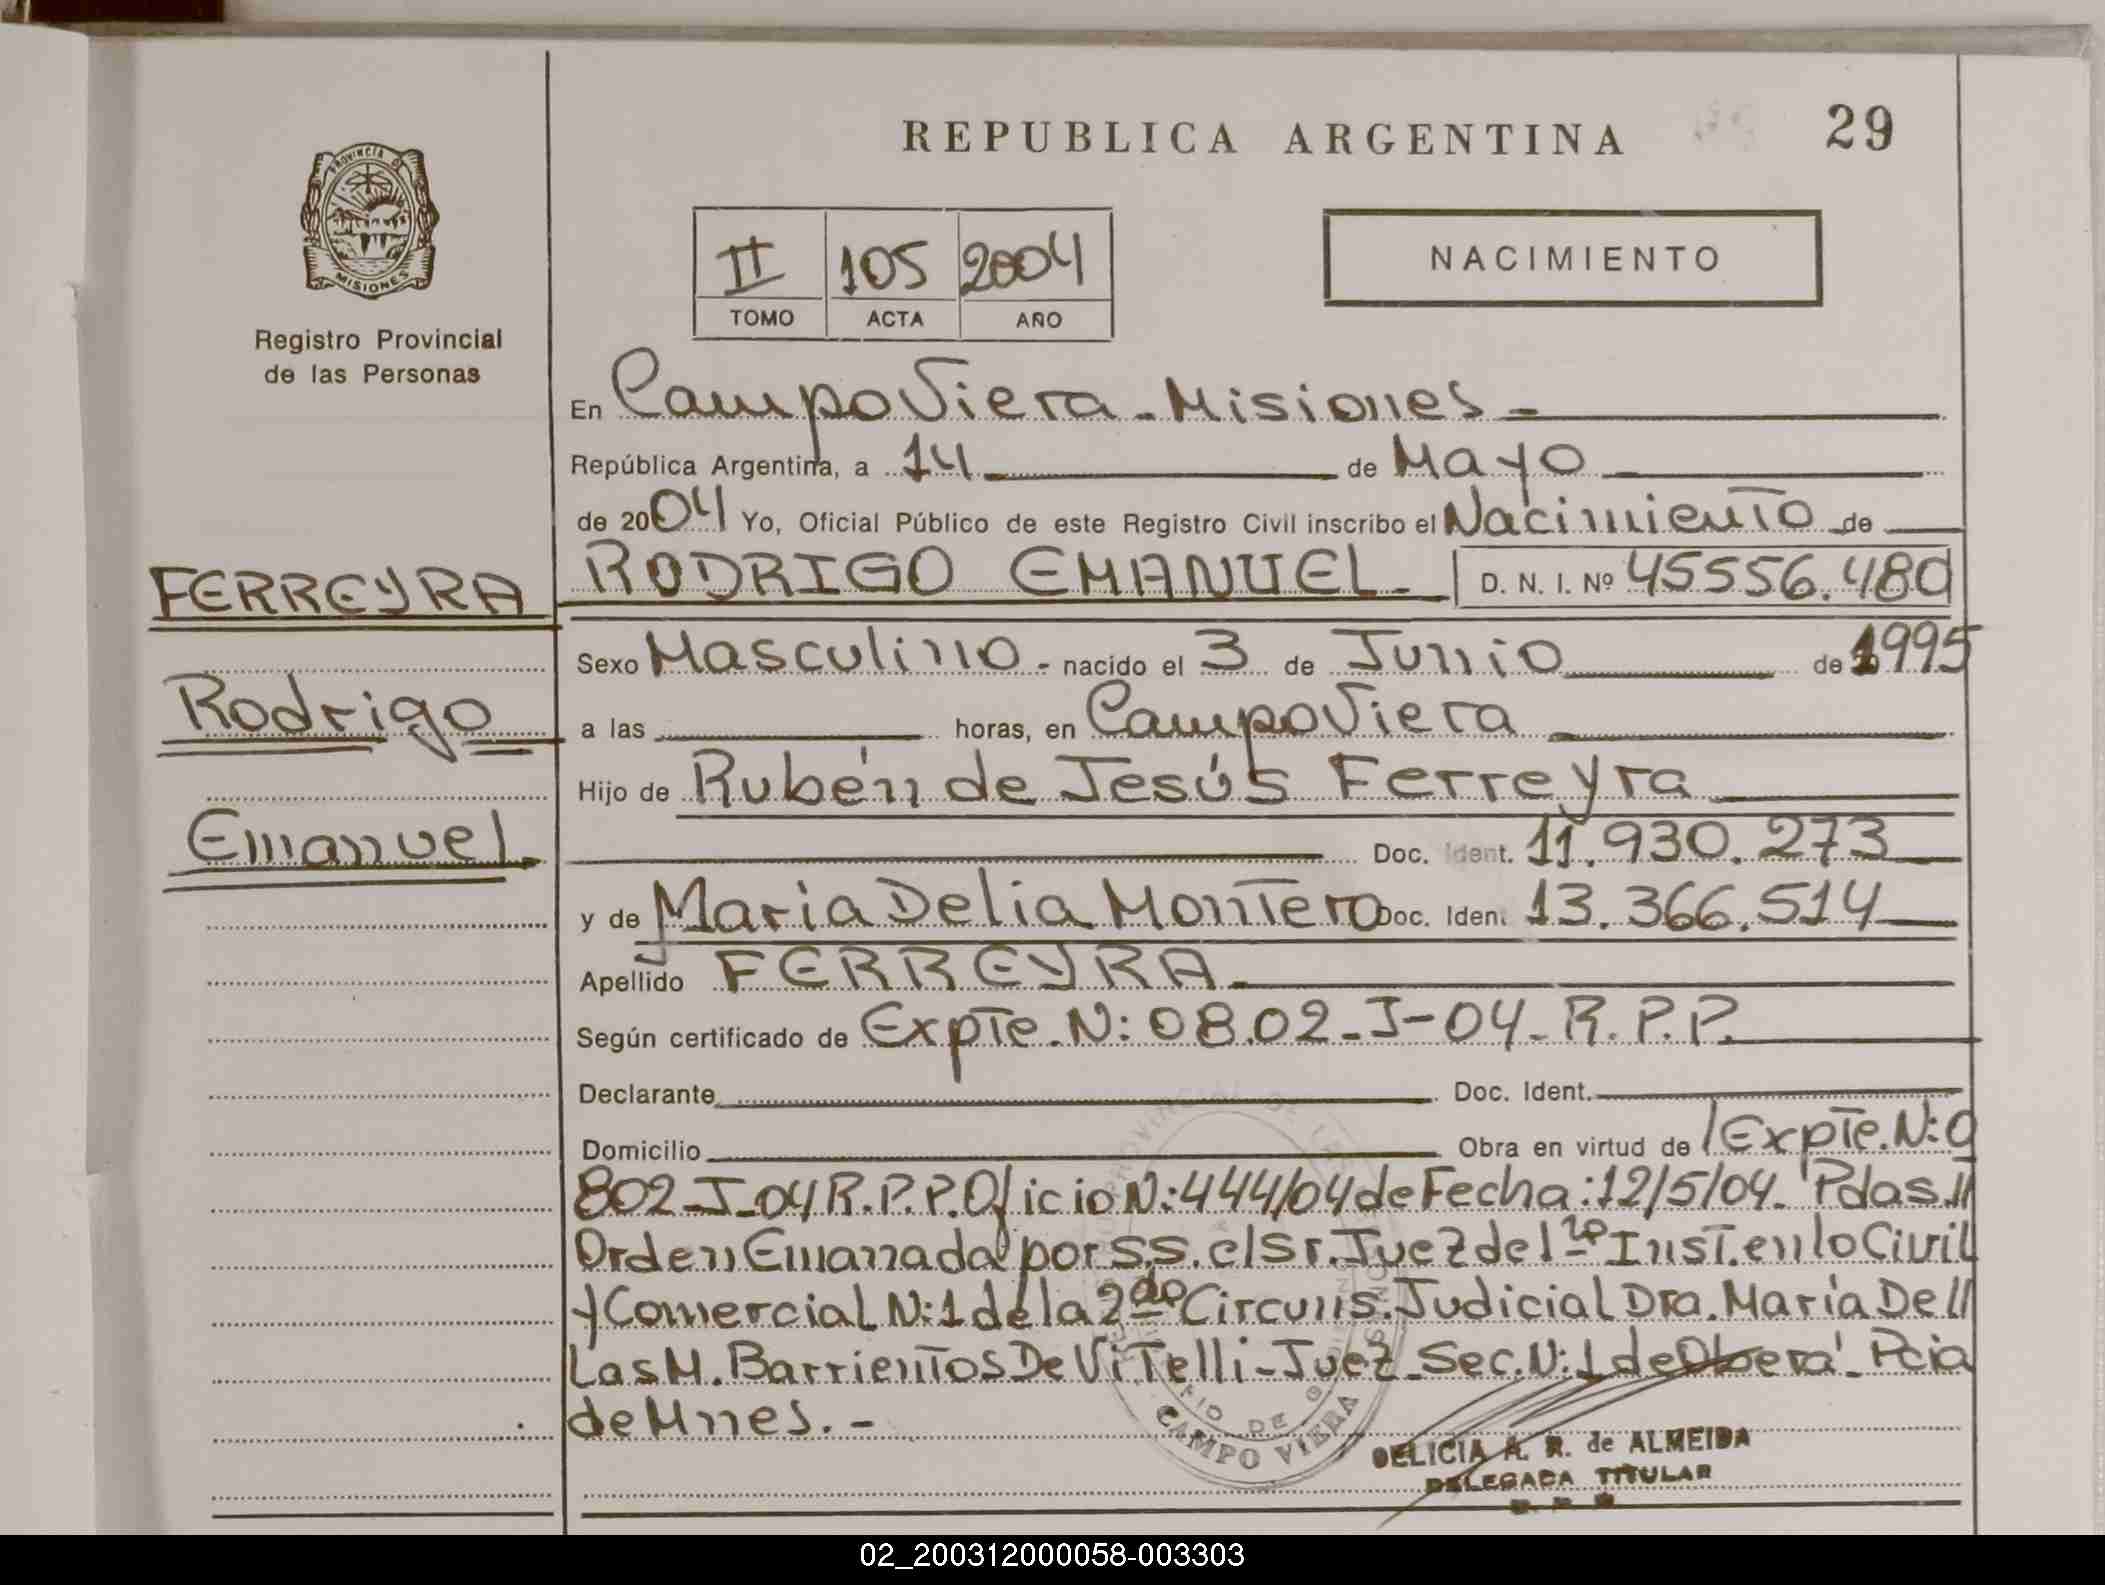 REPUBLICA ARGENTINA
29
PROVINCIA DE
MISIONES
Registro Provincial
de las Personas
II 105 2004
TOMO ACTA AÑO
NACIMIENTO
En Campo Viera - Misiones -
República Argentina, a 14 de Mayo
de 2004 Yo, Oficial Público de este Registro Civil inscribo el Nacimiento de
FERREYRA RODRIGO EMANUEL - D. N. I. Nº 45556.480
Sexo Masculino - nacido el 3 de Junio de 1995
Rodrigo
a las horas, en Campo Viera
Hijo de Rubén de Jesús Ferreyra
Emanuel
Doc. Ident. 11.930.273
y de Maria Delia Montero Doc. Iden. 13.366.514
Apellido FERREYRA
Según certificado de Expte. N: 0802-J-04-R.P.P.
Declarante Doc. Ident.
Domicilio Obra en virtud de / Expte. N: 0
802-J-04 R.P.P. Oficio N: 444/04 de Fecha: 12/5/04. Pdas. //
Orden Emanada por S.S. el Sr. Juez de 1ro Inst. en lo Civil
y Comercial N: 1 de la 2do Circuns. Judicial Dra. María De //
Las M. Barrientos De Vitelli - Juez - Sec. N: 1 de Oberá - Pcia
de Mnes. -
CAMPO VIERA
DELICIA A. R. de ALMEIDA
DELEGADA TITULAR
02_200312000058-003303